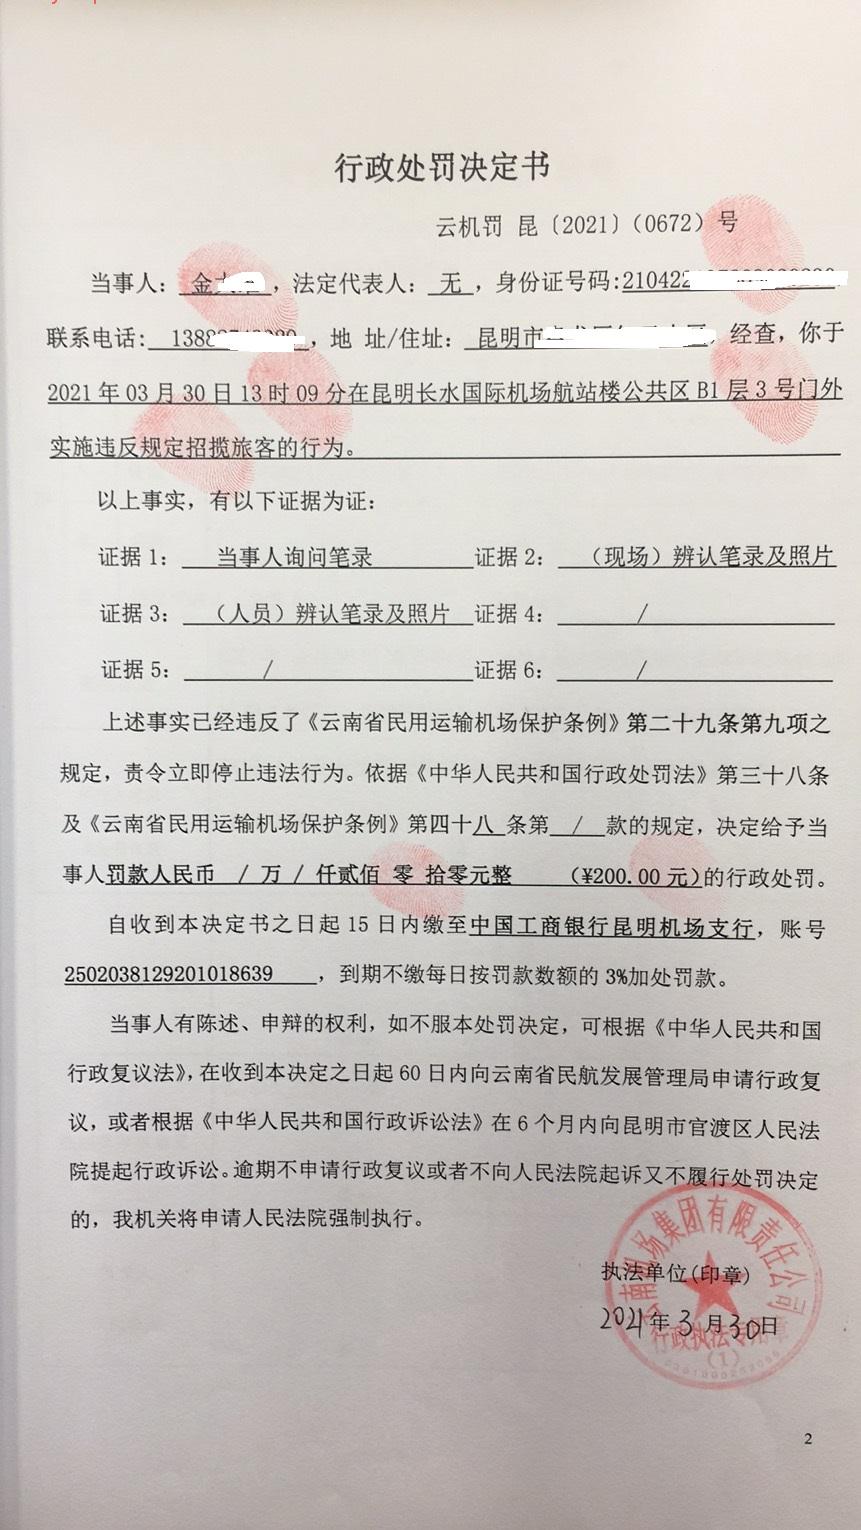 行政处罚决定书
云机罚 昆〔2021〕(0672)号
当事人：金，法定代表人：无，身份证号码:210422
联系电话:1388，地 址/住址：昆明市 经查，你于
2021年03月30日13时09分在昆明长水国际机场航站楼公共区B1层3号门外
实施违反规定招揽旅客的行为。
以上事实，有以下证据为证：
证据1：当事人询问笔录 证据2：（现场）辨认笔录及照片
证据3：（人员）辨认笔录及照片 证据4：/
证据5：/ 证据6：/
上述事实已经违反了《云南省民用运输机场保护条例》第二十九条第九项之
规定，责令立即停止违法行为。依据《中华人民共和国行政处罚法》第三十八条
及《云南省民用运输机场保护条例》第四十八 条第 / 款的规定，决定给予当
事人罚款人民币 / 万 / 仟贰佰 零 拾零元整 (¥200.00元)的行政处罚。
自收到本决定书之日起15日内缴至中国工商银行昆明机场支行，账号
2502038129201018639，到期不缴每日按罚款数额的3%加处罚款。
当事人有陈述、申辩的权利，如不服本处罚决定，可根据《中华人民共和国
行政复议法》，在收到本决定之日起60日内向云南省民航发展管理局申请行政复
议，或者根据《中华人民共和国行政诉讼法》在6个月内向昆明市官渡区人民法
院提起行政诉讼。逾期不申请行政复议或者不向人民法院起诉又不履行处罚决定
的，我机关将申请人民法院强制执行。
云南机场集团有限责任公司
执法单位(印章)
2021年3月30日
行政执法专用章
(1)
2